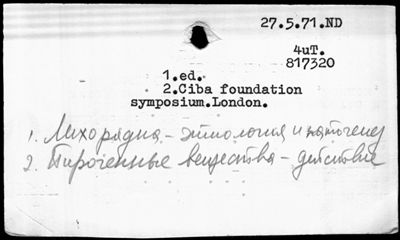 27.5.71.ND
4uT.
817320
1.ed.
2.Ciba foundation
symposium.London.
1. Лихорадка - этиология и патогенез
2. Пирогенные вещества - действие